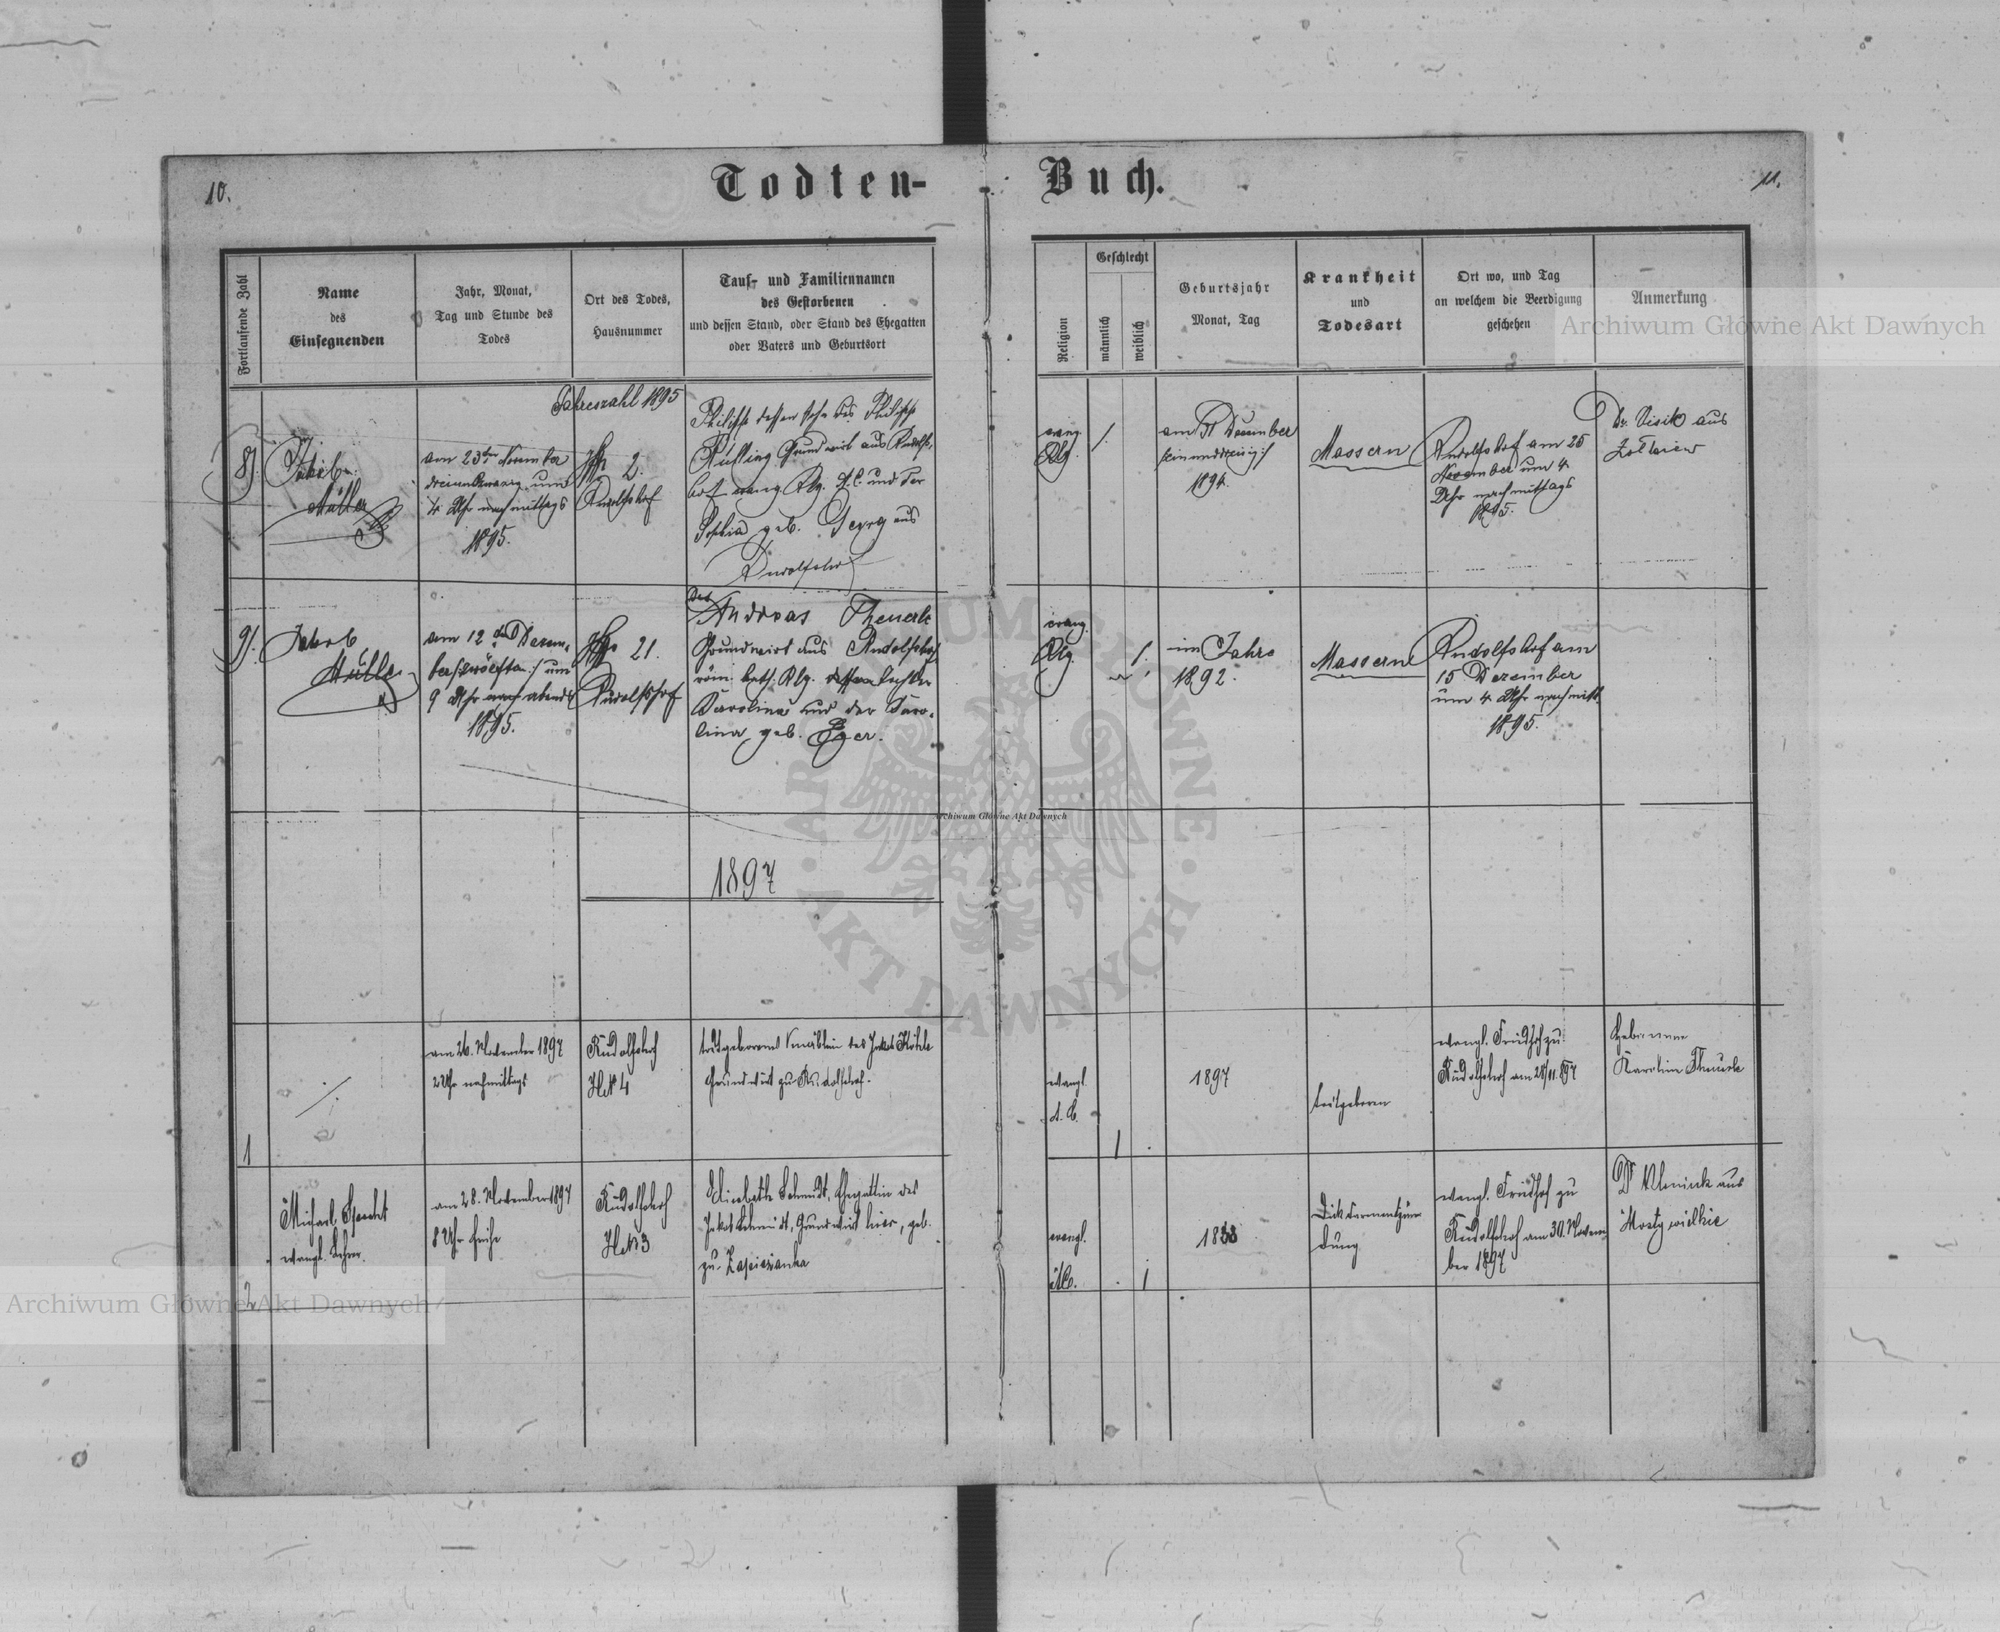 10.
Todten-Buch.
11.
Fortlaufende Zahl
Name
des
Einsegnenden
Jahr, Monat,
Tag und Stunde des
Todes
Ort des Todes,
Hausnummer
Tauf- und Familiennamen
des Gestorbenen
und dessen Stand, oder Stand des Ehegatten
oder Vaters und Geburtsort
Religion
Geschlecht
männlich
weiblich
Geburtsjahr
Monat, Tag
Krankheit
und
Todesart
Ort wo, und Tag
an welchem die Beerdigung
geschehen
Anmerkung
Archiwum Główne Akt Dawnych
Jahreszahl 1895
8/.
Jakob
Müller
am 23ten November
um
4 Uhr nachmittags
1895.
2.
Rudolfshof
Philipp dessen Sohn des Philipp
Grundwirt aus Rudolfs-
hof evang. Rlg. A.C. und der
Sophia geb. Georg aus
Rudolfshof
evang.
Rlg.
1.
am 31 Dezember
1894.
Massern
Rudolfshof am 25
November um 4
Uhr nachmittags
1895.
Dr. Visik aus
Zółkiew
9/.
Jakob
Müller
am 12 ten Dezem-
ber /:zwölften:/ um
9 Uhr nach abends
1895.
21.
Rudolfshof
Des
Andreas Theuerle
Grundwirt aus Rudolfshof
röm. kath. Rlg. dessen Tochter
Karolina und der Karo-
lina geb. Eger.
evang.
Rlg.
1.
im Jahre
1892.
Massern
Rudolfshof am
15 Dezember
um 4 Uhr nachmitt.
1895.
Archiwum Główne Akt Dawnych
ARCHIWUM GŁÓWNE AKT DAWNYCH
1897
1
am 26. November 1897
2 Uhr nachmittags
Rudolfshof
HN 4
todtgeborenes Knäblein des Jakob Köhle
Grundwirt zu Rudolfshof.
evangl.
A.C.
1
1897
todtgeboren
evangl. Friedhof zu
Rudolfshof am 28/11. 897
Hebamme
Karolin Theuerle
2
Michael Specht
evangl. Lehrer
am 28. November 1897
8 Uhr früh
Rudolfshof
HN 3
Elisabeth Schmidt, Ehegattin des
Jakob Schmidt, Grundwirt hier, geb.
zu
evangl.
A.C.
1
1838
Dickdarmentzün-
dung
evangl. Friedhof zu
Rudolfshof am 30. Novem-
ber 1897
Dr. aus
Mosty wielkie
Archiwum Główne Akt Dawnych